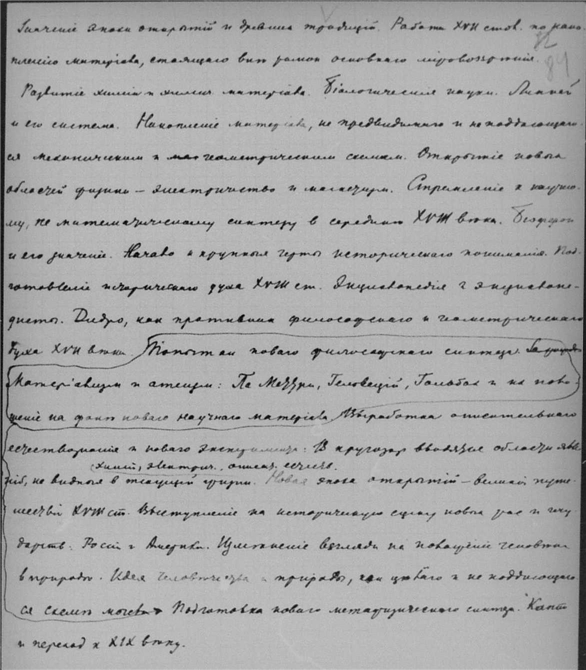 Значение эпохи открытий и древняя традиция. Работа XVII стол. по нако-
плению матерiала, стоящаго вне рамок основного мiровоззренiя.
84
Развитiе химiи и химия матерiала. Бiологическiя науки. Линней
и его система. Накопленiе матерiала, не предвидимаго и не поддающаго-
ся механическим и геометрическим схемам. Открытiе новых
областей физики — электричество и магнетизм. Стремленiе к научно-
му, не математическому синтезу в середине XVIII века. Бюффон
и его значенiе. Начало и крупныя черты историческаго пониманiя. Под-
готовленiе историческаго духа XVIII ст. Энциклопедiя и энциклопе-
дисты. Дидро, как противник философскаго и геометрическаго
духа XVII века. Попытки новаго философскаго синтеза.
Матерiализм и атеизм: Ла Меттри, Гельвецiй, Гольбах и их
на фоне новаго научнаго матерiала. Выработка описательнаго
естествознанiя и новаго эксперимента: В кругозор вводятся области явле-
химiя, электрич., описат. естеств.
нiй, не видныя в текущей физики. Новая эпоха открытiй — великiя путе-
шествiя XVIII ст. Выступленiе на историческую сцену новых рас и госу-
дарств: Россiя и Америка. Измененiе взгляда на положенiе человека
в природе. Идея человечества и природы, как целаго и не поддающаго-
ся схеме Подготовка новаго метафизическаго синтеза. Кант
и переход к XIX веку.